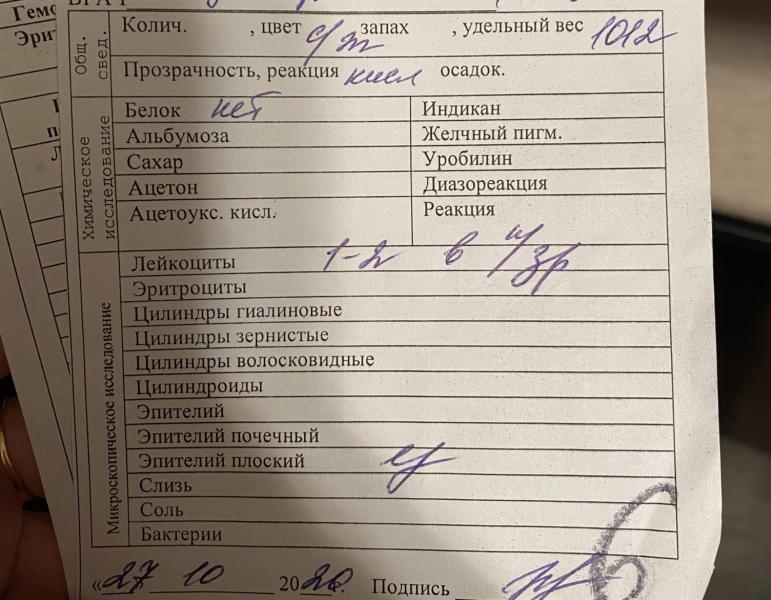 Гемо
Эрит
ВРАЧ
Общ. свед.
Колич. , цвет с/ж запах , удельный вес 1012
Прозрачность, реакция кисл осадок.
Химическое исследование
Белок нет Индикан
Альбумоза Желчный пигм.
Сахар Уробилин
Ацетон Диазореакция
Ацетоукс. кисл. Реакция
Микроскопическое исследование
Лейкоциты 1-2 в п/зр
Эритроциты
Цилиндры гиалиновые
Цилиндры зернистые
Цилиндры волосковидные
Цилиндроиды
Эпителий
Эпителий почечный
Эпителий плоский ед
Слизь
Соль
Бактерии
«27 10 2020г. Подпись